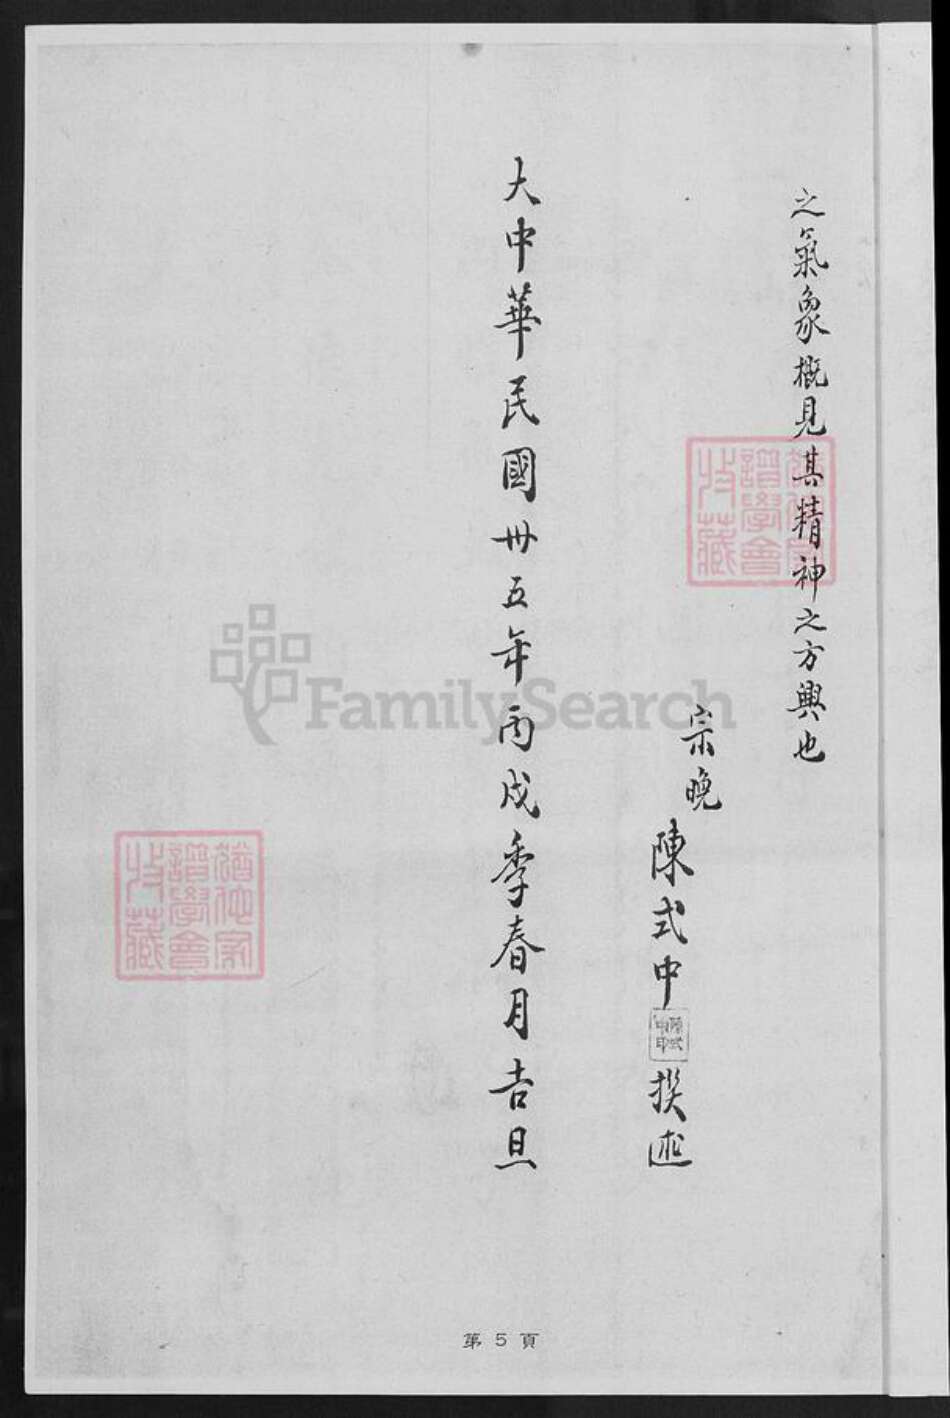 之氣象概見其精神之方興也
宗晚
陳式中
陳式
中印
撰述
大中華民國卅五年丙戌季春月吉旦
譜學會
收藏
譜學會
收藏
FamilySearch
第5頁